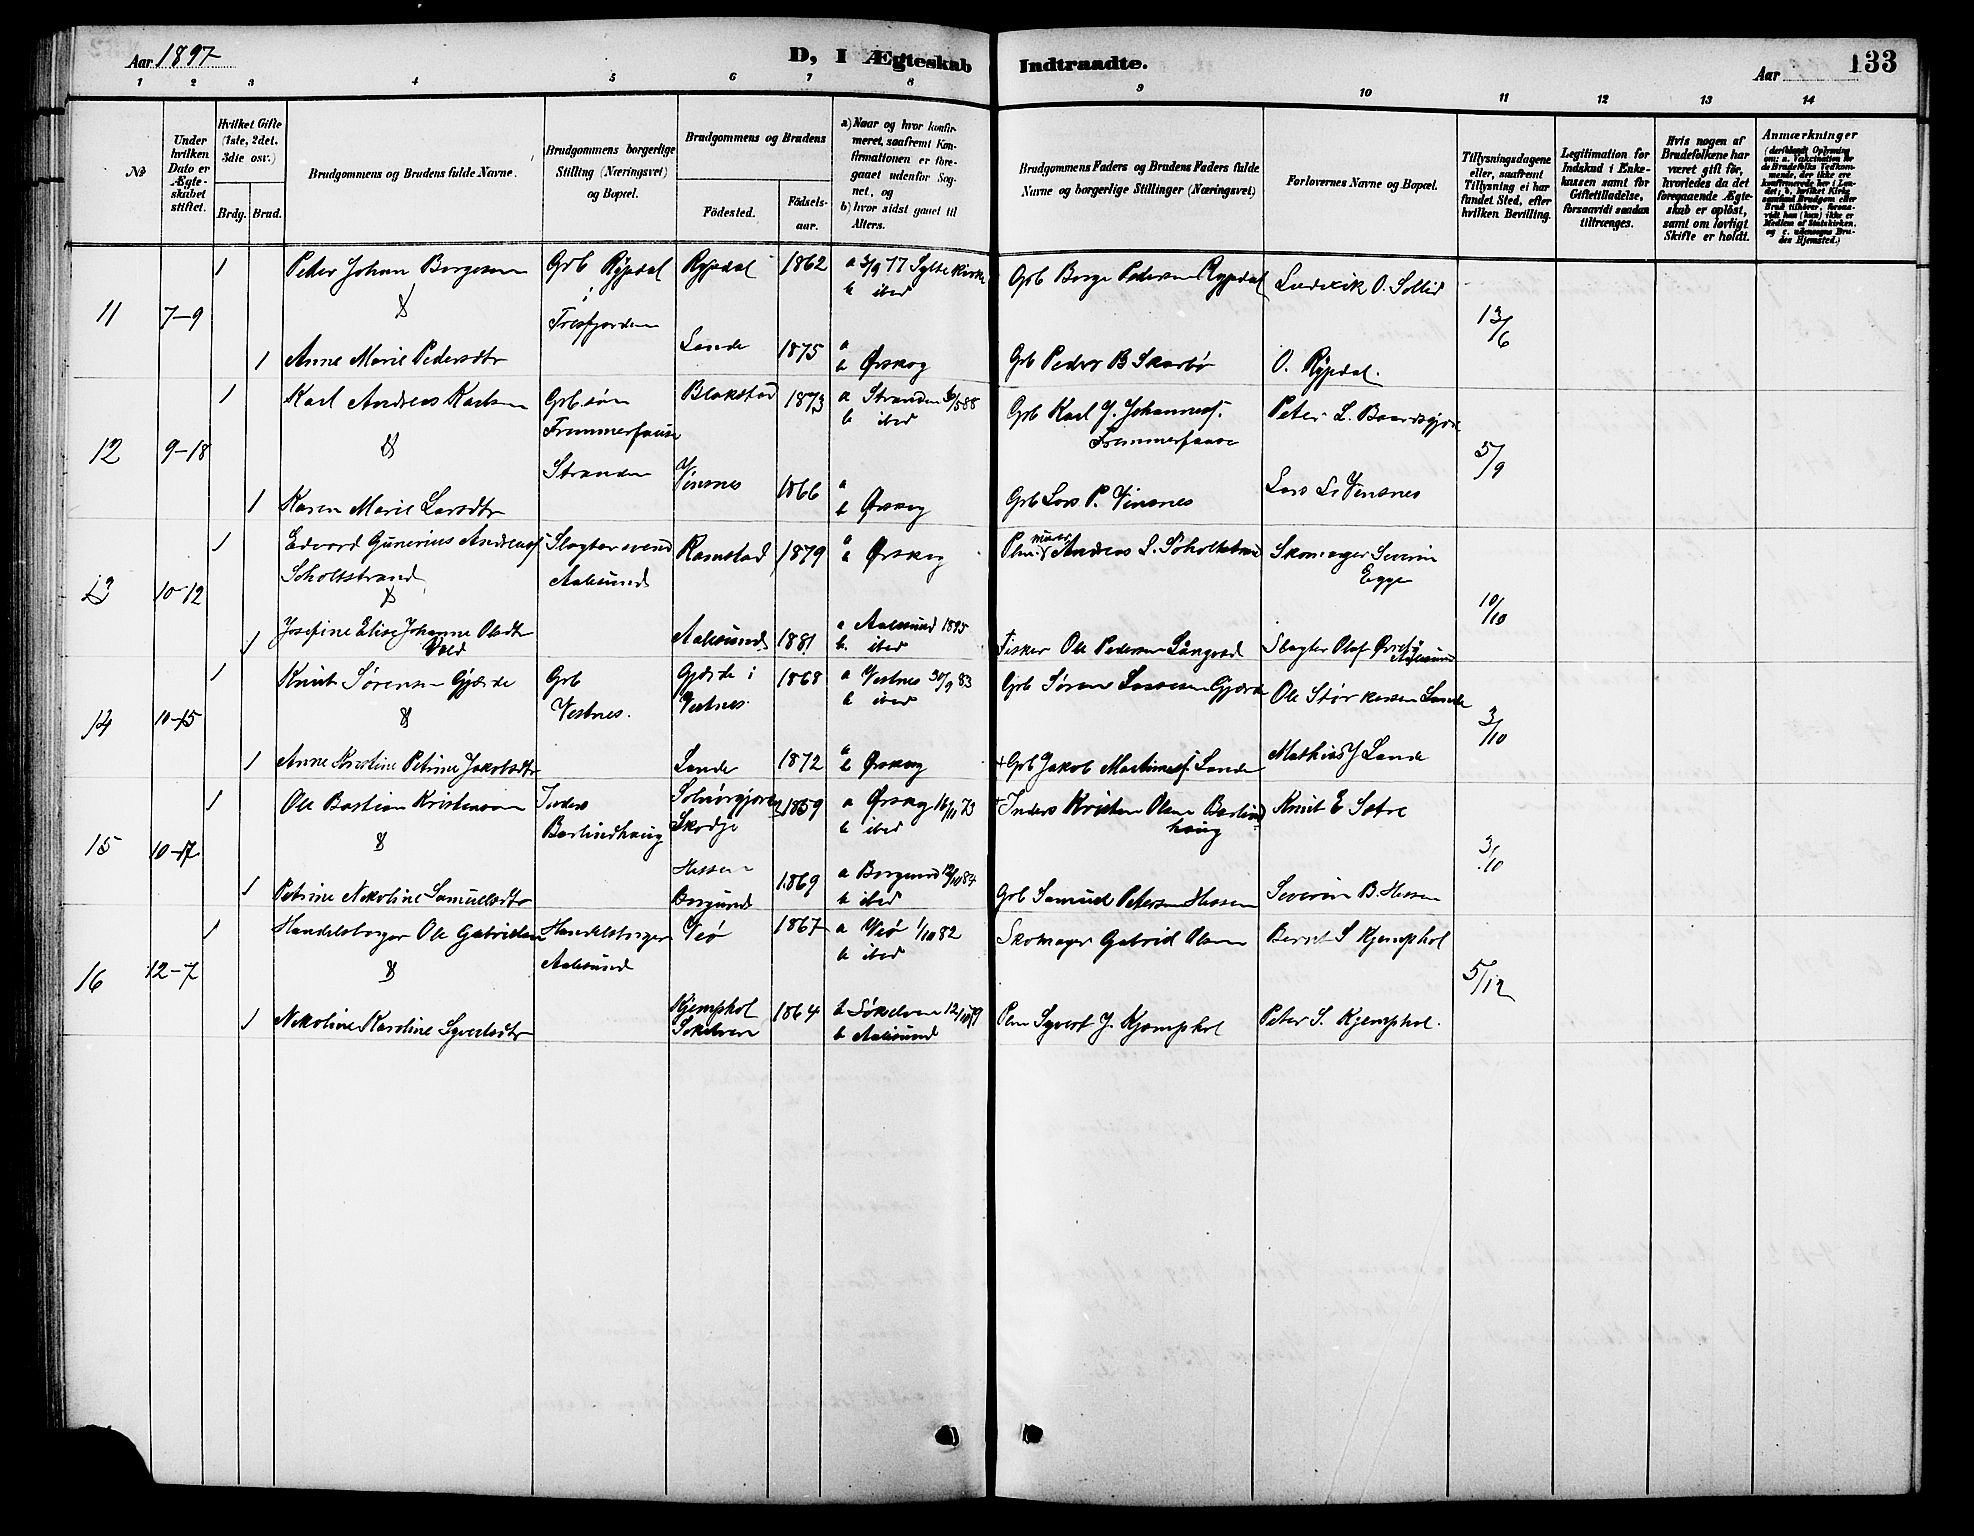 Aar 1897
D, I Ægteskab Indtraadte.
Aar
133
1 2 3 4 5 6 7 8 9 10 11 12 13 14
No
Under hvilken Dato er Ægteskabet stiftet.
Hvilket Gifte (1ste, 2det, 3die osv.)
Brdg. Brud.
Brudgommens og Brudens fulde Navne.
Brudgommens borgerlige Stilling (Næringsvei) og Bopæl.
Brudgommens og Brudens
Födested.
Födselsaar.
a) Naar og hvor konfirmeret, saafremt Konfirmationen er foregaaet udenfor Sognet, og
b) hvor sidst gaaet til Alters.
Brudgommens Faders og Brudens Faders fulde Navne og borgerlige Stillinger (Næringsvei)
Forlovernes Navne og Bopæl.
Tillysningsdagene eller, saafremt Tillysning ei har fundet Sted, efter hvilken Bevilling.
Legitimation for Indskud i Enkekassen samt for Giftetilladelse, forsaavidt saadan tiltrænges.
Hvis nogen af Brudefolkene har været gift för, hvorledes da det foregaaende Ægteskab er oplöst, samt om lovligt Skifte er holdt.
Anmærkninger
11 7-9
1 Peter Johan Borgesen Grb Rypdal i Tresfjorden Rypdal 1862 a 3/9 77 Sylte Kirke b ibid Grb Borge Pedersen Rypdal Ludvik O. Sollid
13/6
1 Anne Marie Pedersdtr Lande 1875 a b Ørskog Grb Peder B Skarbø O. Rypdal.
12 9-18
1 Karl Andreas Karlsen Grb.søn Fremmerfause Stranden Blakstad 1873 a Stranden b ibid Grb Karl J. Johannesf. Fremmerfause Peter L. Baardsgjære
5/9
1 Karen Marie Larsdtr Viksnes 1866 a b Ørskog Grb Lars P. Viksnes Lars L. Viksnes
13 10-12
1 Edvard Gunerius Andreasf Soholtstrand Slagtersvend Aalesund Ramstad 1879 a b Ørskog Plm. murer Andreas L. Soholtstrand Skomager Severin Egge
10/10
1 Josefine Elise Johanne Olsdtr Vold Aalesund 1881 a Aalesund 1895 b. ibid Fisker Ole Pedersen Slagter Olaf Aalesund
14 10-15
1 Knut Sørensen Gjærde Grb Vestnes. Gjærde i Vestnes. 1868 a Vestnes 30/9 83 b ibid Grb Søren Lassesen Gjærde Ole Størkersen Lande
3/10
1 Anne Kristine Petrine Jakobsdtr Lande 1872 a b Ørskog + Grb Jakob Martinusf. Lande Mathias J Lande
15 10-17
1 Ole Bastian Kristensen Inders Barlindhaug Solnørgjære Skodje 1859 a Ørskog 16/11 73 b ibid Inders Kristen Olsen Barlindhaug Knut E Sætre
3/10
1 Petrine Nikoline Samuelsdtr Hessen Borgund 1869 a Borgund 12/10 84 b ibid Grb Samuel Petersen Hessen Severin B. Hessen
16 12-7
1 Handelsborger Ole Gabrielsen Handelsborger Aalesund Veø 1867 a Veø 1/10 82 b ibid Skomager Gabriel Olsen Bernt S Kjemphol
5/12
1 Nikoline Karoline Syvertsdtr Kjemphol Sökelven 1864 a Sökelven 12/10 79 b Aalesund Plm Syvert J. Kjemphol Peter S. Kjemphol.